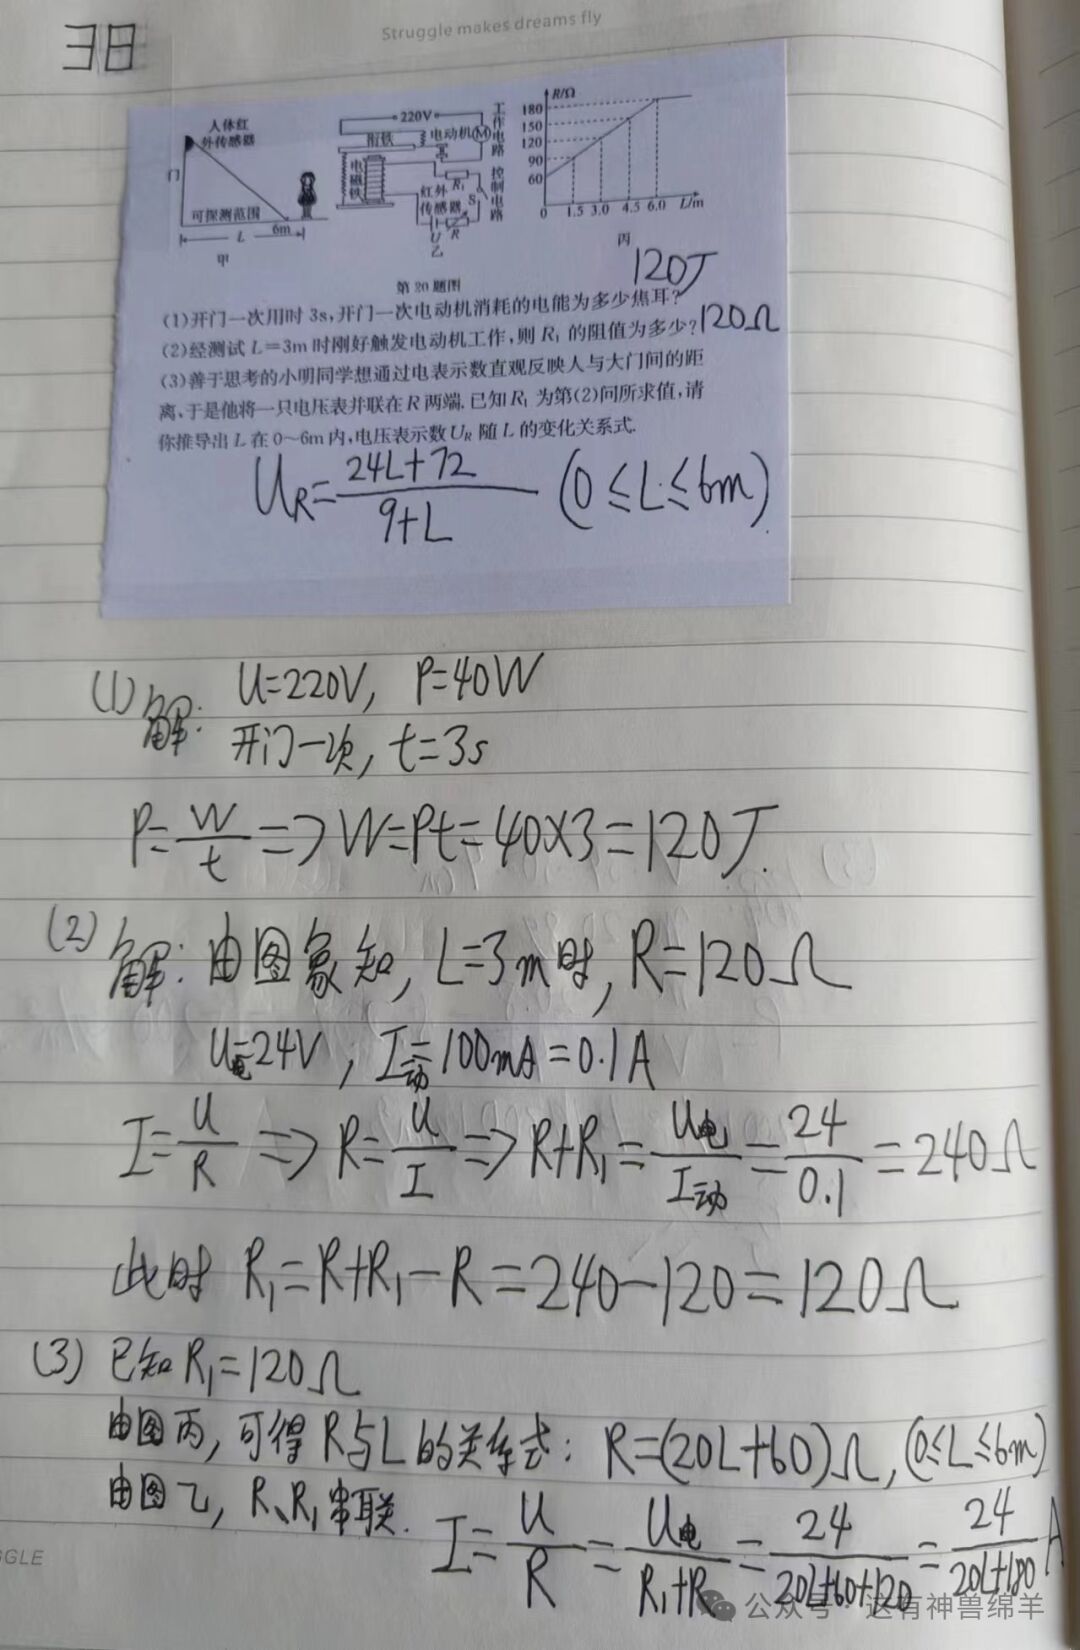 38
Struggle makes dreams fly
人体红
外传感器
门
可探测范围
6m
L
甲
220V
衔铁
电动机
M
工作电路
电磁铁
R₁
红外
传感器
S
控制电路
U
R
乙
R/Ω
180
150
120
90
60
0 1.5 3.0 4.5 6.0 L/m
丙
第20题图
120J
(1)开门一次用时3s,开门一次电动机消耗的电能为多少焦耳?
(2)经测试L=3m时刚好触发电动机工作,则R₁的阻值为多少? 120Ω
(3)善于思考的小明同学想通过电表示数直观反映人与大门间的距
离、于是他将一只电压表并联在R两端.已知R₁为第(2)问所求值,请
你推导出L在0~6m内,电压表示数U_R随L的变化关系式.
U_R=(24L+72)/(9+L) (0≤L≤6m)
(1)解: U=220V, P=40W
开门一次, t=3s
P=W/t => W=Pt=40×3=120J.
(2)解:由图象知, L=3m时, R=120Ω
U电=24V, I动=100mA=0.1A
I=U/R => R=U/I => R+R₁=U电/I动=24/0.1=240Ω
此时 R₁=R+R₁-R=240-120=120Ω
(3) 已知R₁=120Ω
由图丙,可得R与L的关系式: R=(20L+60)Ω, (0≤L≤6m)
由图乙, R、R₁串联.
I=U/R=U电/(R₁+R)=24/(20L+60+120)=24/(20L+180) A
GGLE
公众号·这有神兽绵羊